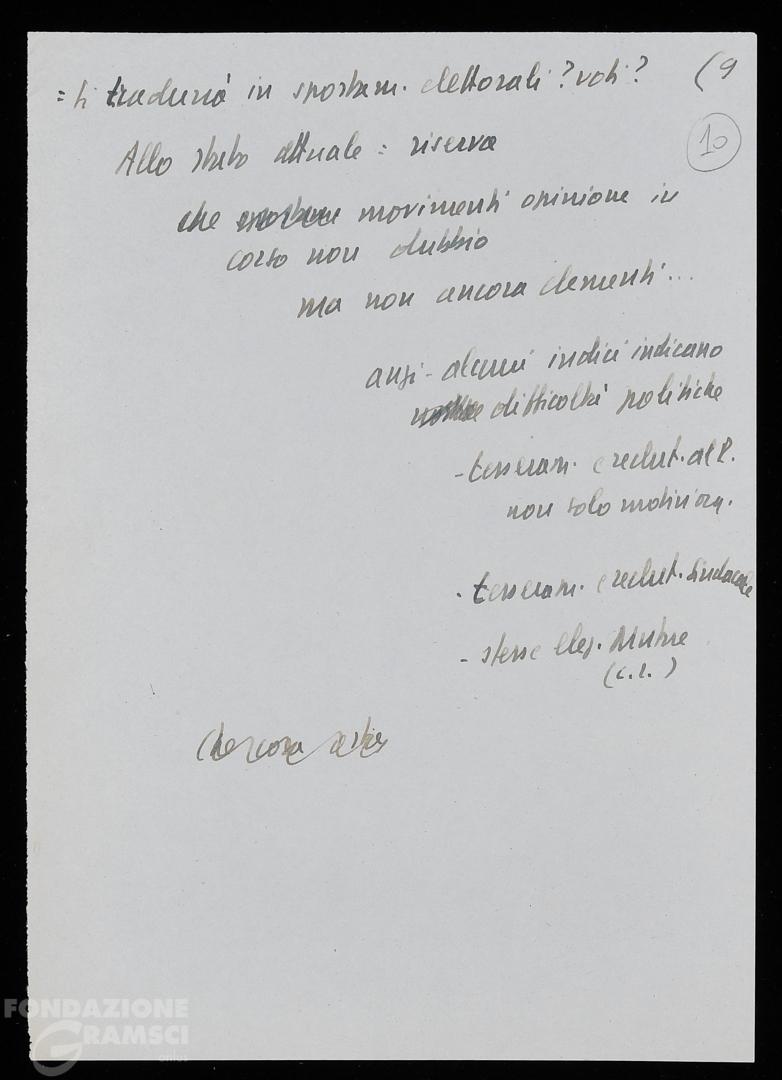 = si tradurrà in spostam. elettorali? voti? (9
10
Allo stato attuale = riserva
che movimenti opinione in
corso non dubbio
ma non ancora elementi...
anzi - alcuni indici indicano
difficoltà politiche
- tesseram. e reclut. al P.
non solo motivi org.
- tesseram. e reclut. sindacale
- stesse elez. Mutue
(C.I.)
Che cosa
FONDAZIONE
GRAMSCI
onlus